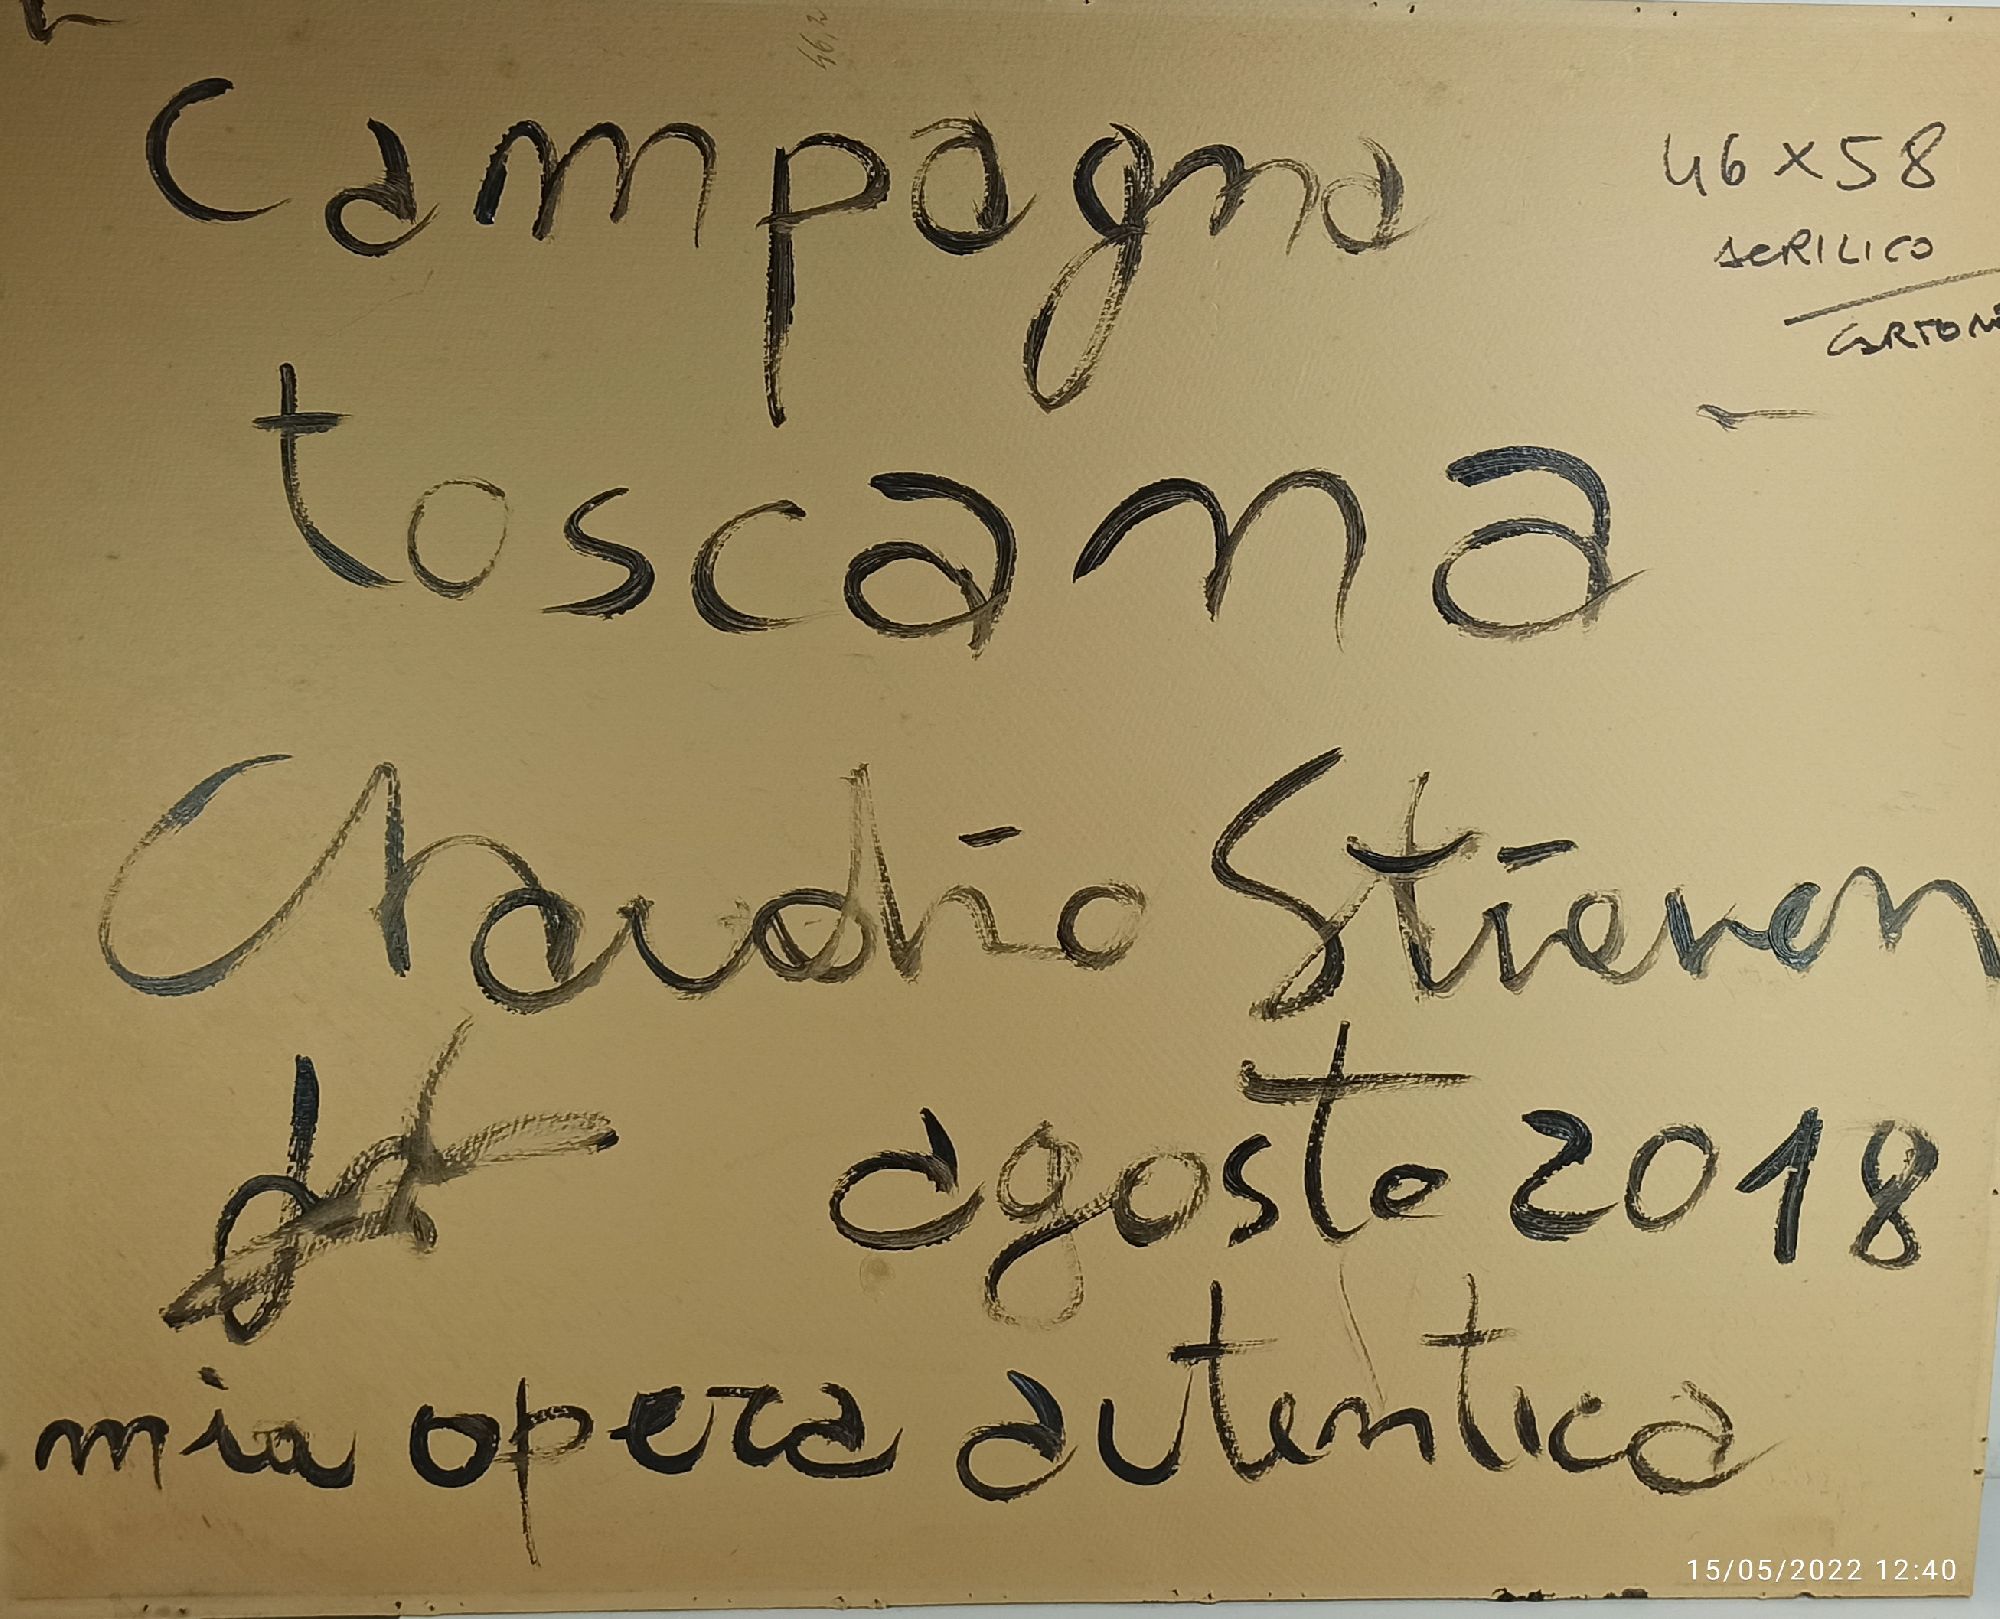 46,2
Campagna
46 x 58
ACRILICO
CARTONE
toscana
Claudio Stieven
agosto 2018
mia opera autentica
15/05/2022 12:40